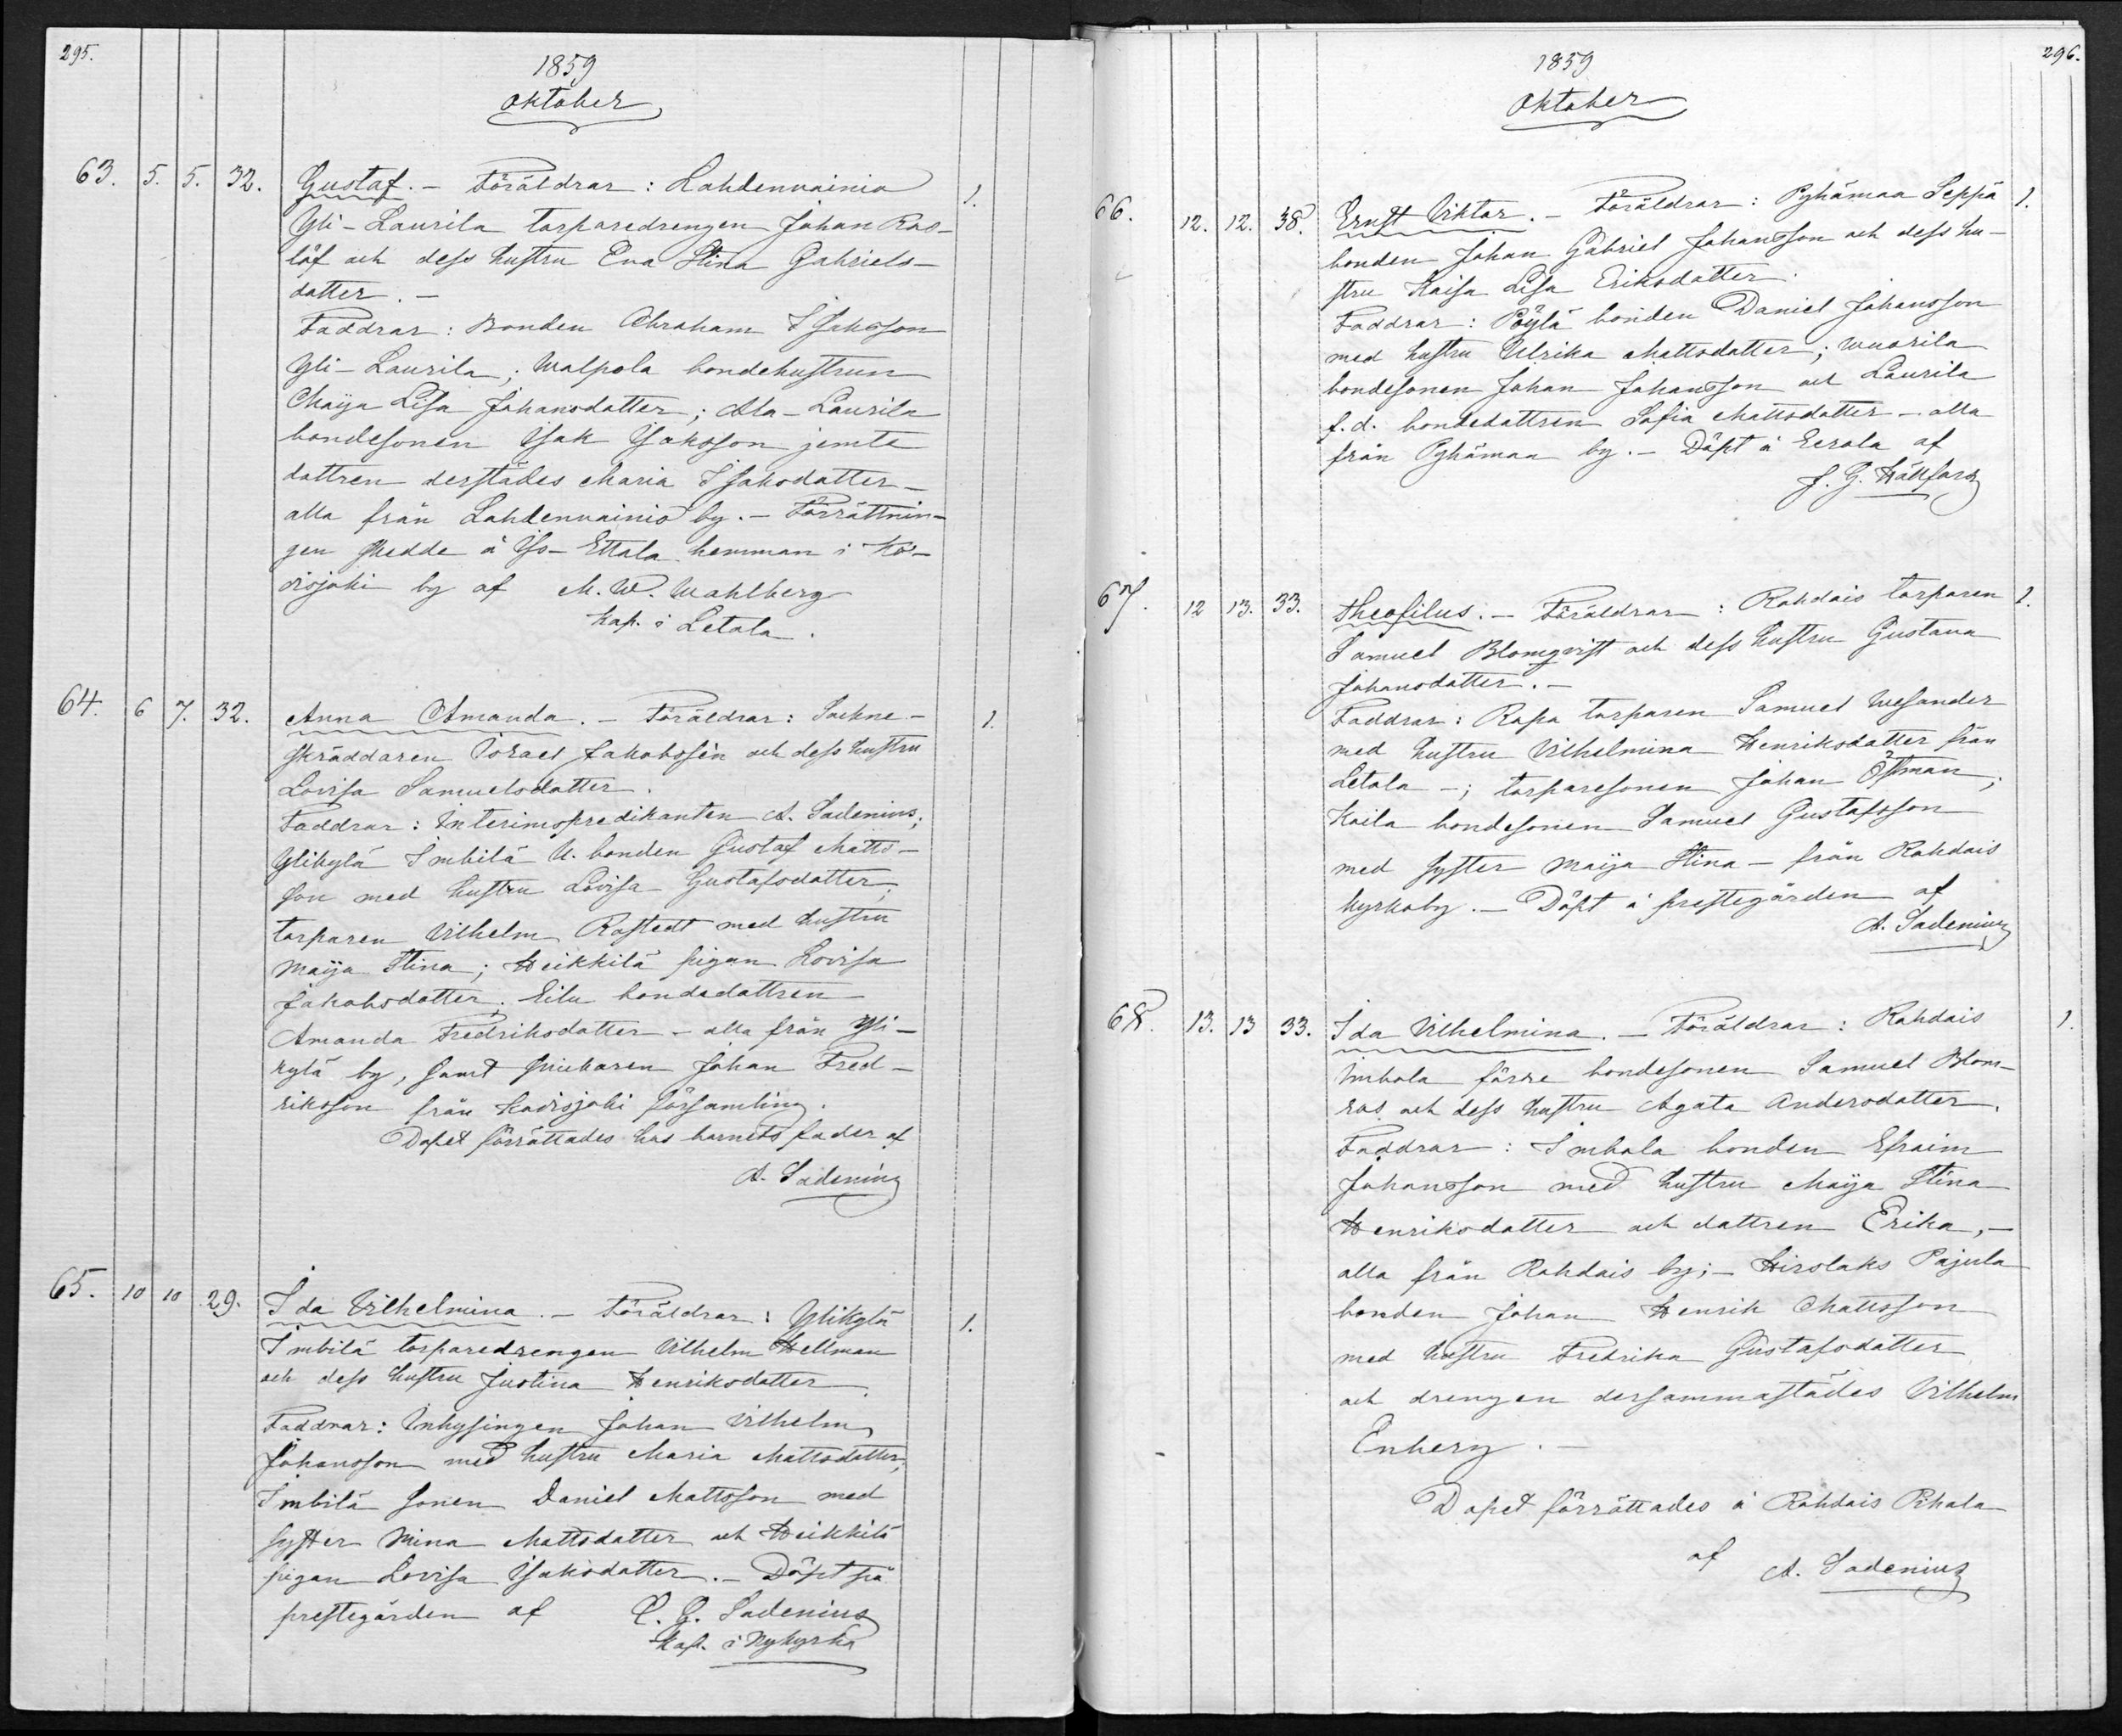 295.
1859
Oktober
63. 5. 5. 32. Gustaf. – Föräldrar: Lahdenvainio 1.
Yli-Laurila torparedrengen Johan Ros-
löf och dess hustru Eva Stina Gabriels-
dotter. –
Faddrar: Bonden Abraham Isaksson
Yli-Laurila; Walpola bondehustrun
Maija Lisa Johansdotter; Ala-Laurila
bondesonen Isak Isaksson jemte
dottren derstädes Maria Isaksdotter –
alla från Lahdenvainio by. – Förrättnin-
gen skedde å Iso-Ettala hemman i Ko-
disjoki by af M. W. Wahlberg
Kap. i Letala.
64. 6 7. 32. Anna Amanda. – Föräldrar: Sockne- 1.
skräddaren Israel Jakobsson och dess hustru
Lovisa Samuelsdotter.
Faddrar: Interimspredikanten A. Sadenius;
Ylikylä Imbilä U. bonden Gustaf Matts-
son med hustru Lovisa Gustafsdotter,
torparen Vilhelm Rostedt med hustru
Maija Stina; Heikkilä pigan Lovisa
Jakobsdotter; Eilu bondedottren
Amanda Fredriksdotter – alla från Yli-
kylä by, samt snickaren Johan Fred-
riksson från Kodisjoki församling.
Dopet förrättades hos barnets fader af
A. Sadenius
65. 10 10 29. Ida Vilhelmina. – Föräldrar: Ylikylä 1.
Imbilä torparedrengen Vilhelm Hellman
och dess hustru Justina Henriksdotter.
Faddrar: Inhysingen Johan Vilhelm
Johansson med hustru Maria Mattsdotter;
Imbilä sonen Daniel Mattsson med
syster Mina Mattsdotter och Heikkilä
pigan Lovisa Isaksdotter. – Döpt på
prestegården af C. G. Sadenius
Kap. i Nykyrka
296.
1859
Oktober
66. 12. 12. 38. Ernst Viktor. – Föräldrar: Pyhämaa Seppä 1.
bonden Johan Gabriel Johansson och dess hu-
stru Kaisa Lisa Eriksdotter.
Faddrar: Pöylä bonden Daniel Johansson
med hustru Ulrika Mattsdotter; Wuorila
bondesonen Johan Johansson och Laurila
f.d. bondedottren Sofia Mattsdotter – alla
från Pyhämaa by. – Döpt å Eerola af
J. G. Hällfors
67. 12 13. 33. Theofilus. – Föräldrar: Rohdais torparen 1.
Samuel Blomqvist och dess hustru Gustava
Johansdotter. –
Faddrar: Rapa torparen Samuel Wesander
med hustru Vilhelmina Henriksdotter från
Letala –; torparesonen Johan Östman;
Kaila bondesonen Samuel Gustafsson
med syster Maija Stina – från Rohdais
kyrkoby. – Döpt å prestegården af
A. Sadenius
68. 13. 13 33. Ida Vilhelmina. – Föräldrar: Rohdais 1.
Imbola förre bondesonen Samuel Blom-
ros och dess hustru Agata Andersdotter.
Faddrar: Imbola bonden Efraim
Johansson med hustru Maija Stina
Henriksdotter och dottren Erika, –
alla från Rohdais by; – Hirslaks Pajula
bonden Johan Henrik Mattsson
med hustru Fredrika Gustafsdotter
och drengen dersammastädes Vilhelm
Enberg. –
Dopet förrättades å Rohdais Pihala
af A. Sadenius